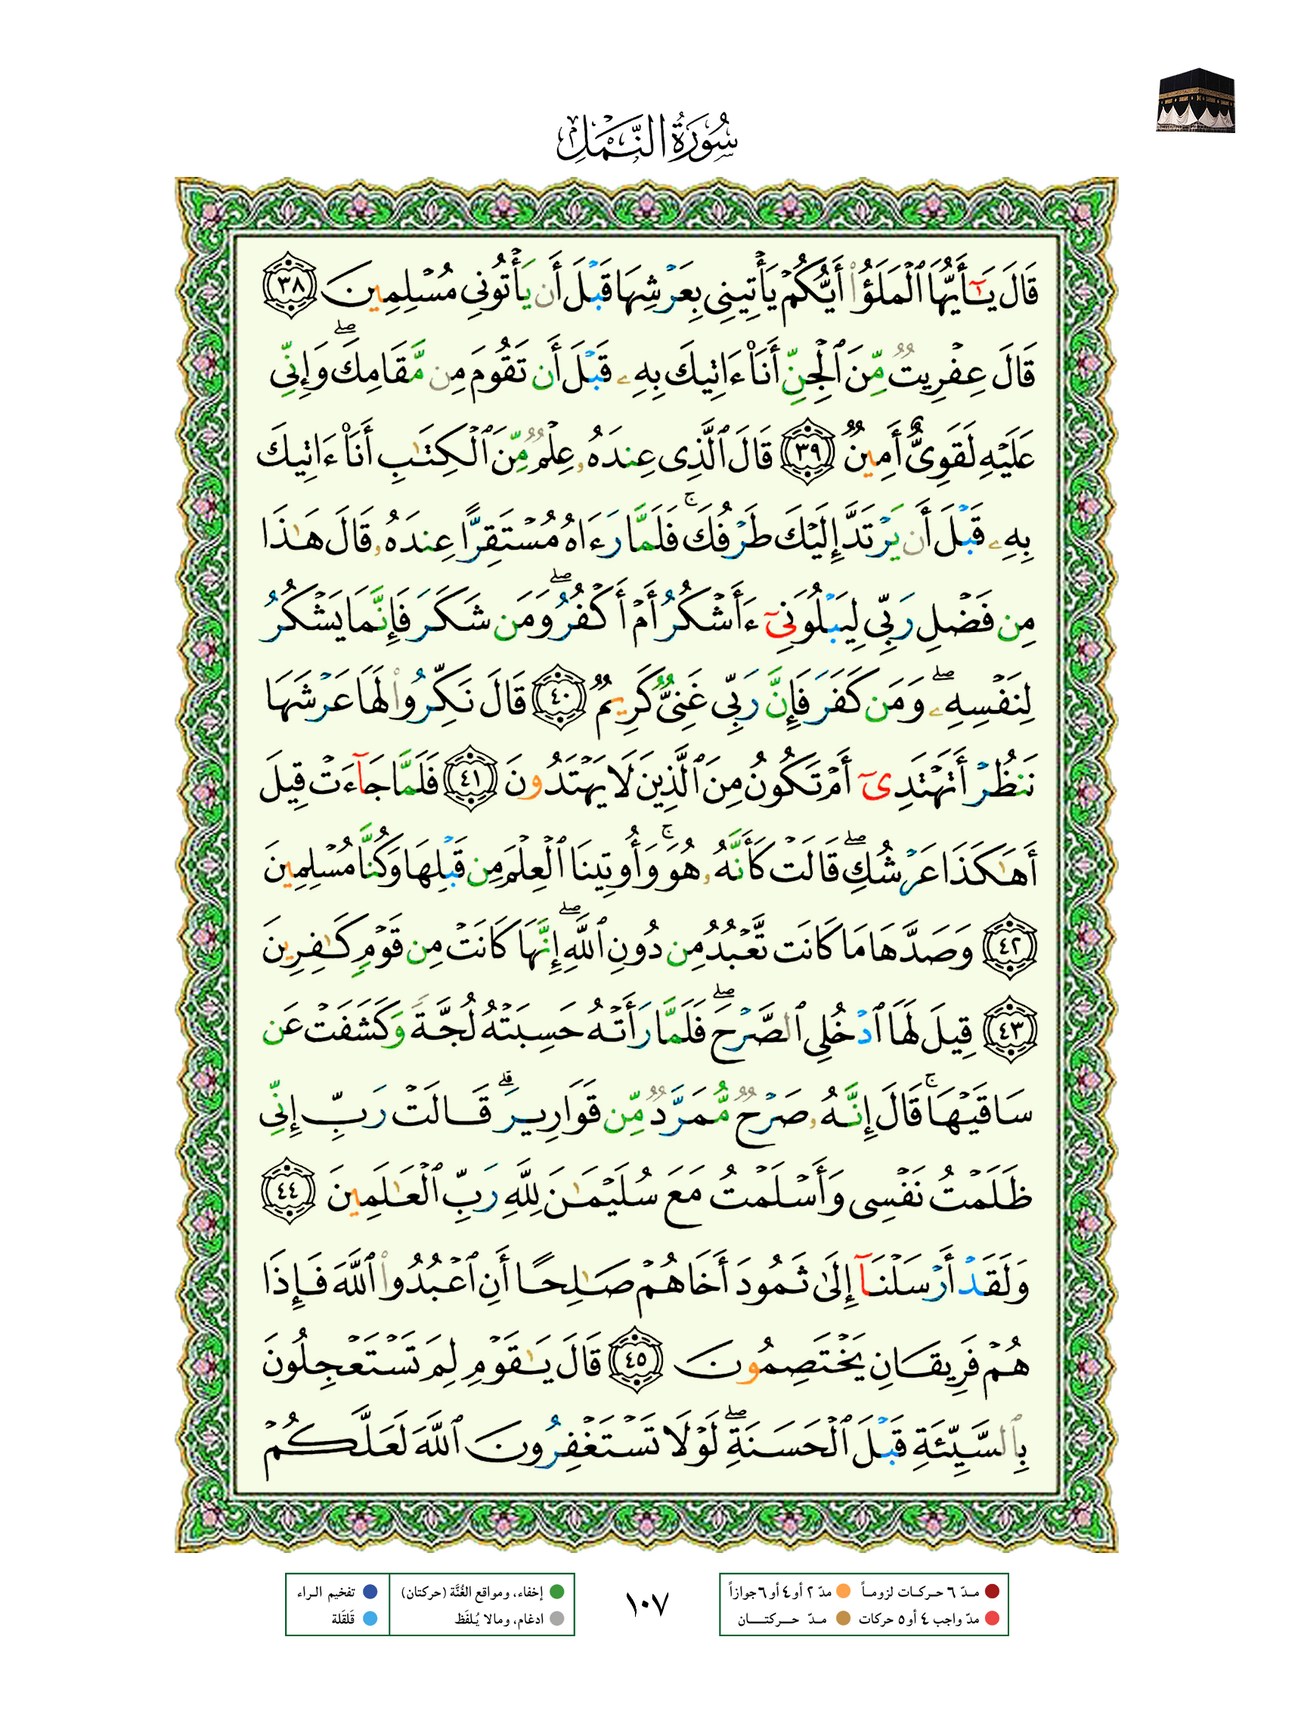 سُورَةُ النَّمْلِ
قَالَ يَٰٓأَيُّهَا ٱلْمَلَؤُا۟ أَيُّكُمْ يَأْتِينِى بِعَرْشِهَا قَبْلَ أَن يَأْتُونِى مُسْلِمِينَ ٣٨
قَالَ عِفْرِيتٌ مِّنَ ٱلْجِنِّ أَنَا۠ ءَاتِيكَ بِهِۦ قَبْلَ أَن تَقُومَ مِن مَّقَامِكَ ۖ وَإِنِّى
عَلَيْهِ لَقَوِىٌّ أَمِينٌ ٣٩ قَالَ ٱلَّذِى عِندَهُۥ عِلْمٌ مِّنَ ٱلْكِتَٰبِ أَنَا۠ ءَاتِيكَ
بِهِۦ قَبْلَ أَن يَرْتَدَّ إِلَيْكَ طَرْفُكَ ۚ فَلَمَّا رَءَاهُ مُسْتَقِرًّا عِندَهُۥ قَالَ هَٰذَا
مِن فَضْلِ رَبِّى لِيَبْلُوَنِىٓ ءَأَشْكُرُ أَمْ أَكْفُرُ ۖ وَمَن شَكَرَ فَإِنَّمَا يَشْكُرُ
لِنَفْسِهِۦ ۖ وَمَن كَفَرَ فَإِنَّ رَبِّى غَنِىٌّ كَرِيمٌ ٤٠ قَالَ نَكِّرُوا۟ لَهَا عَرْشَهَا
نَنظُرْ أَتَهْتَدِىٓ أَمْ تَكُونُ مِنَ ٱلَّذِينَ لَا يَهْتَدُونَ ٤١ فَلَمَّا جَآءَتْ قِيلَ
أَهَٰكَذَا عَرْشُكِ ۖ قَالَتْ كَأَنَّهُۥ هُوَ ۚ وَأُوتِينَا ٱلْعِلْمَ مِن قَبْلِهَا وَكُنَّا مُسْلِمِينَ
٤٢ وَصَدَّهَا مَا كَانَت تَّعْبُدُ مِن دُونِ ٱللَّهِ ۖ إِنَّهَا كَانَتْ مِن قَوْمٍ كَٰفِرِينَ
٤٣ قِيلَ لَهَا ٱدْخُلِى ٱلصَّرْحَ ۖ فَلَمَّا رَأَتْهُ حَسِبَتْهُ لُجَّةً وَكَشَفَتْ عَن
سَاقَيْهَا ۚ قَالَ إِنَّهُۥ صَرْحٌ مُّمَرَّدٌ مِّن قَوَارِيرَ ۗ قَالَتْ رَبِّ إِنِّى
ظَلَمْتُ نَفْسِى وَأَسْلَمْتُ مَعَ سُلَيْمَٰنَ لِلَّهِ رَبِّ ٱلْعَٰلَمِينَ ٤٤
وَلَقَدْ أَرْسَلْنَآ إِلَىٰ ثَمُودَ أَخَاهُمْ صَٰلِحًا أَنِ ٱعْبُدُوا۟ ٱللَّهَ فَإِذَا
هُمْ فَرِيقَانِ يَخْتَصِمُونَ ٤٥ قَالَ يَٰقَوْمِ لِمَ تَسْتَعْجِلُونَ
بِٱلسَّيِّئَةِ قَبْلَ ٱلْحَسَنَةِ ۖ لَوْلَا تَسْتَغْفِرُونَ ٱللَّهَ لَعَلَّكُمْ
مدّ ٦ حركات لزوماً مدّ ٢ أو ٤ أو ٦ جوازاً
مدّ واجب ٤ أو ٥ حركات مدّ حركتان
١٠٧
إخفاء، ومواقع الغُنَّة (حركتان) تفخيم الراء
ادغام، ومالا يُلفَظ قلقَلة